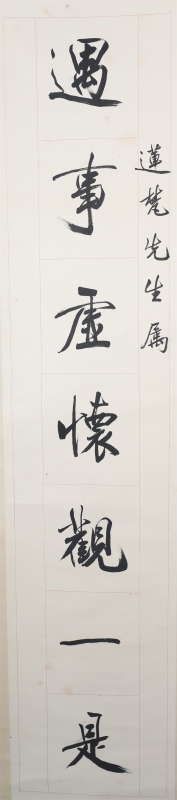 蓮梵先生属
遇事虛懷觀一是